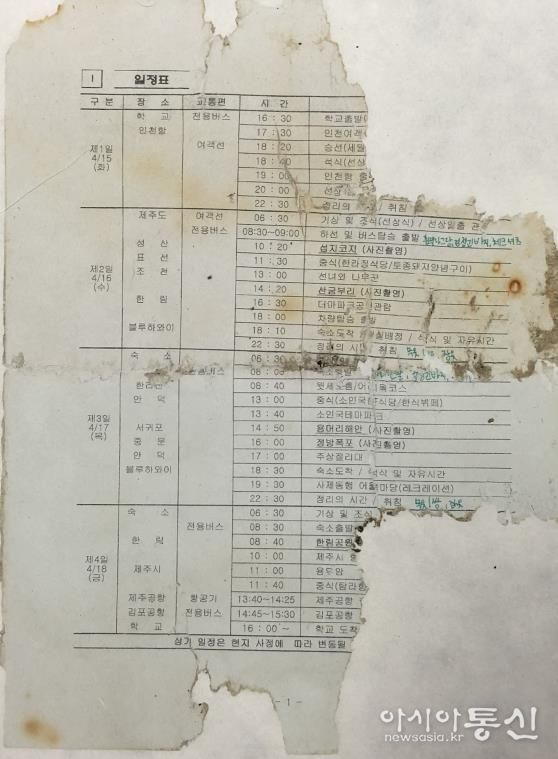 Ⅰ 일정표
구 분 장 소 교통편 시 간
제1일 4/15 (화)
학 교 전용버스 16 : 30 학교출발
인천항 17 : 30 인천여객
여객선 18 : 20 승선(세월
18 : 40 석식(선상
19 : 00 인천항 출
20 : 00 선상
22 : 30 정리의 / 취침
제2일 4/16 (수)
제주도 여객선 06 : 30 기상 및 조식(선상식) / 선상일출 관
전용버스 08:30~09:00 하선 및 버스탑승 출발
성 산 10 : 20 섭지코지 (사진촬영)
표 선 11 : 30 중식(한라정식당/토종돼지양념구이)
조 천 13 : 00 선녀와 나무꾼
14 : 20 산굼부리 (사진촬영)
한 림 16 : 30 더마파크공연관람
18 : 00 차량탑승 출발
블루하와이 18 : 10 숙소도착 / 실배정 / 석식 및 자유시간
22 : 30 정리의 시 취침
제3일 4/17 (목)
숙 소 06 : 30
08 : 00 숙소출발
한라산 08 : 40 윗세오름/어리목코스
안 덕 13 : 00 중식(소인국 식당/한식뷔페)
13 : 40 소인국테마파크
서귀포 14 : 50 용머리해안 (사진촬영)
중 문 16 : 00 정방폭포 (사진촬영)
안 덕 17 : 00 주상절리대
블루하와이 18 : 30 숙소도착 / 석식 및 자유시간
19 : 30 사제동행 어울 마당(레크레이션)
22 : 30 정리의 시간 / 취침
제4일 4/18 (금)
숙 소 06 : 30 기상 및 조식
전용버스 08 : 30 숙소출발
한 림 08 : 40 한림공원
10 : 00 제주시
제주시 11 : 00 용두암
11 : 40 중식(탐라
제주공항 항공기 13:40~14:25 제주공항
김포공항 전용버스 14:45~15:30 김포공항
학 교 16 : 00 ~ 학교 도착
상기 일정은 현지 사정에 따라 변동될
- 1 -
아시아통신
newsasia.kr